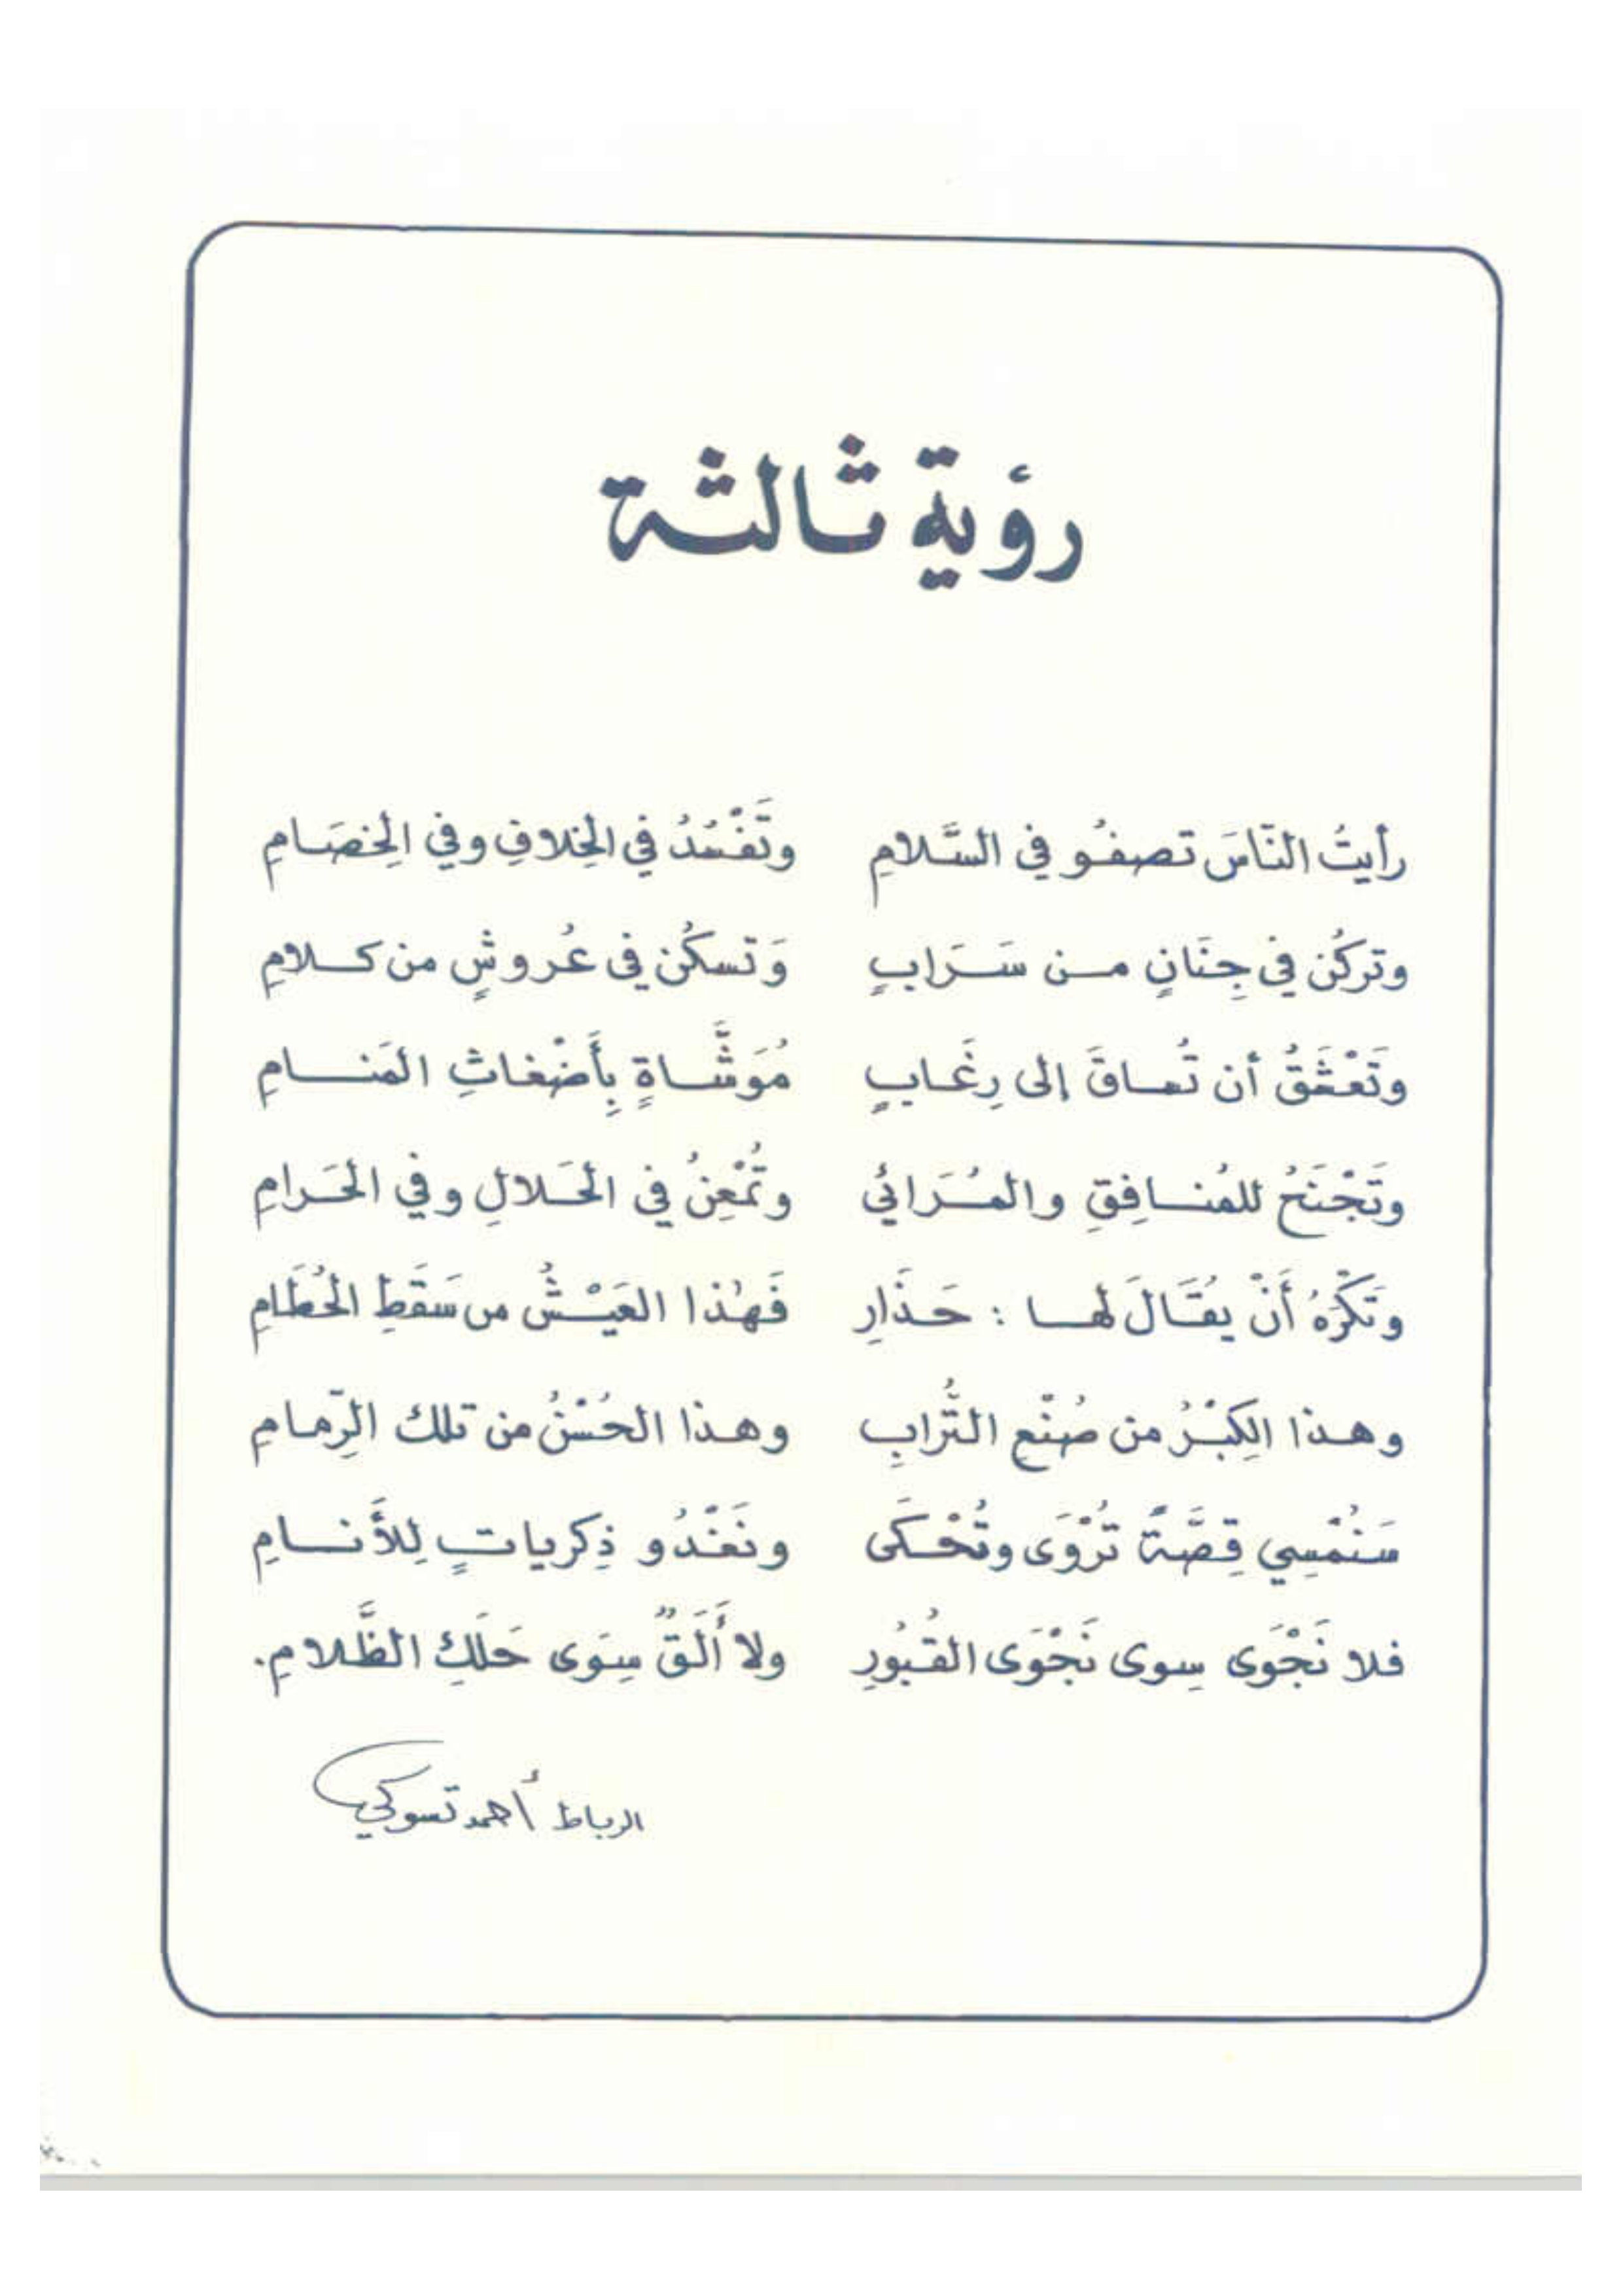 رؤية ثالثة
رأيتُ النّاسَ تصفُو في السَّلامِ وتَفْسُدُ في الخِلافِ وفي الخِصَامِ
وتركُن في جِنَانٍ من سَرَابٍ وَتسكُن في عُروشٍ من كلامِ
وتَعْشَقُ أن تُساقَ إلى رِغَابٍ مُوَشَّاةٍ بِأَضْغاثِ المَنامِ
وتَجْنَحُ للمُنافِقِ والمُرَائي وتُمْعِنُ في الحَلالِ وفي الحَرامِ
وتَكْرَهُ أَنْ يُقَالَ لها : حَذَارِ فَهٰذا العَيْشُ من سَقَطِ الحُطَامِ
وهذا الكِبْرُ من صُنْعِ التُّرابِ وهذا الحُسْنُ من تلك الرّمامِ
سَنُمْسِي قِصَّةً تُرْوَى وتُحْكَى ونَغْدُو ذِكرياتٍ لِلأَنامِ
فلا نَجْوَى سِوى نَجْوَى القُبُورِ ولا أَلَقٌ سِوَى حَلَكِ الظَّلامِ.
الرباط أحمد تسوكي